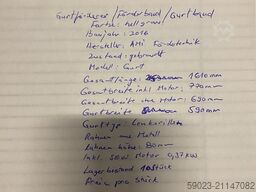 Gurtförderer / Förderband / Gurtband
Farbe: hellgrau
Baujahr: 2016
Hersteller: AMI Fördertechnik
Zustand: gebraucht
Modell: Gurt
Gesamtlänge: 1610mm
Gesamtbreite inkl. Motor: 770mm
Gesamtbreite ohne Motor: 690mm
Gurtbreite 590mm
Gurttyp
Rahmen aus Metall
Rahmen höhe: 80mm
Inkl. SEW Motor 0,37kW
Lagerbestand 10 Stück
Preis pro Stück
59023-21147082